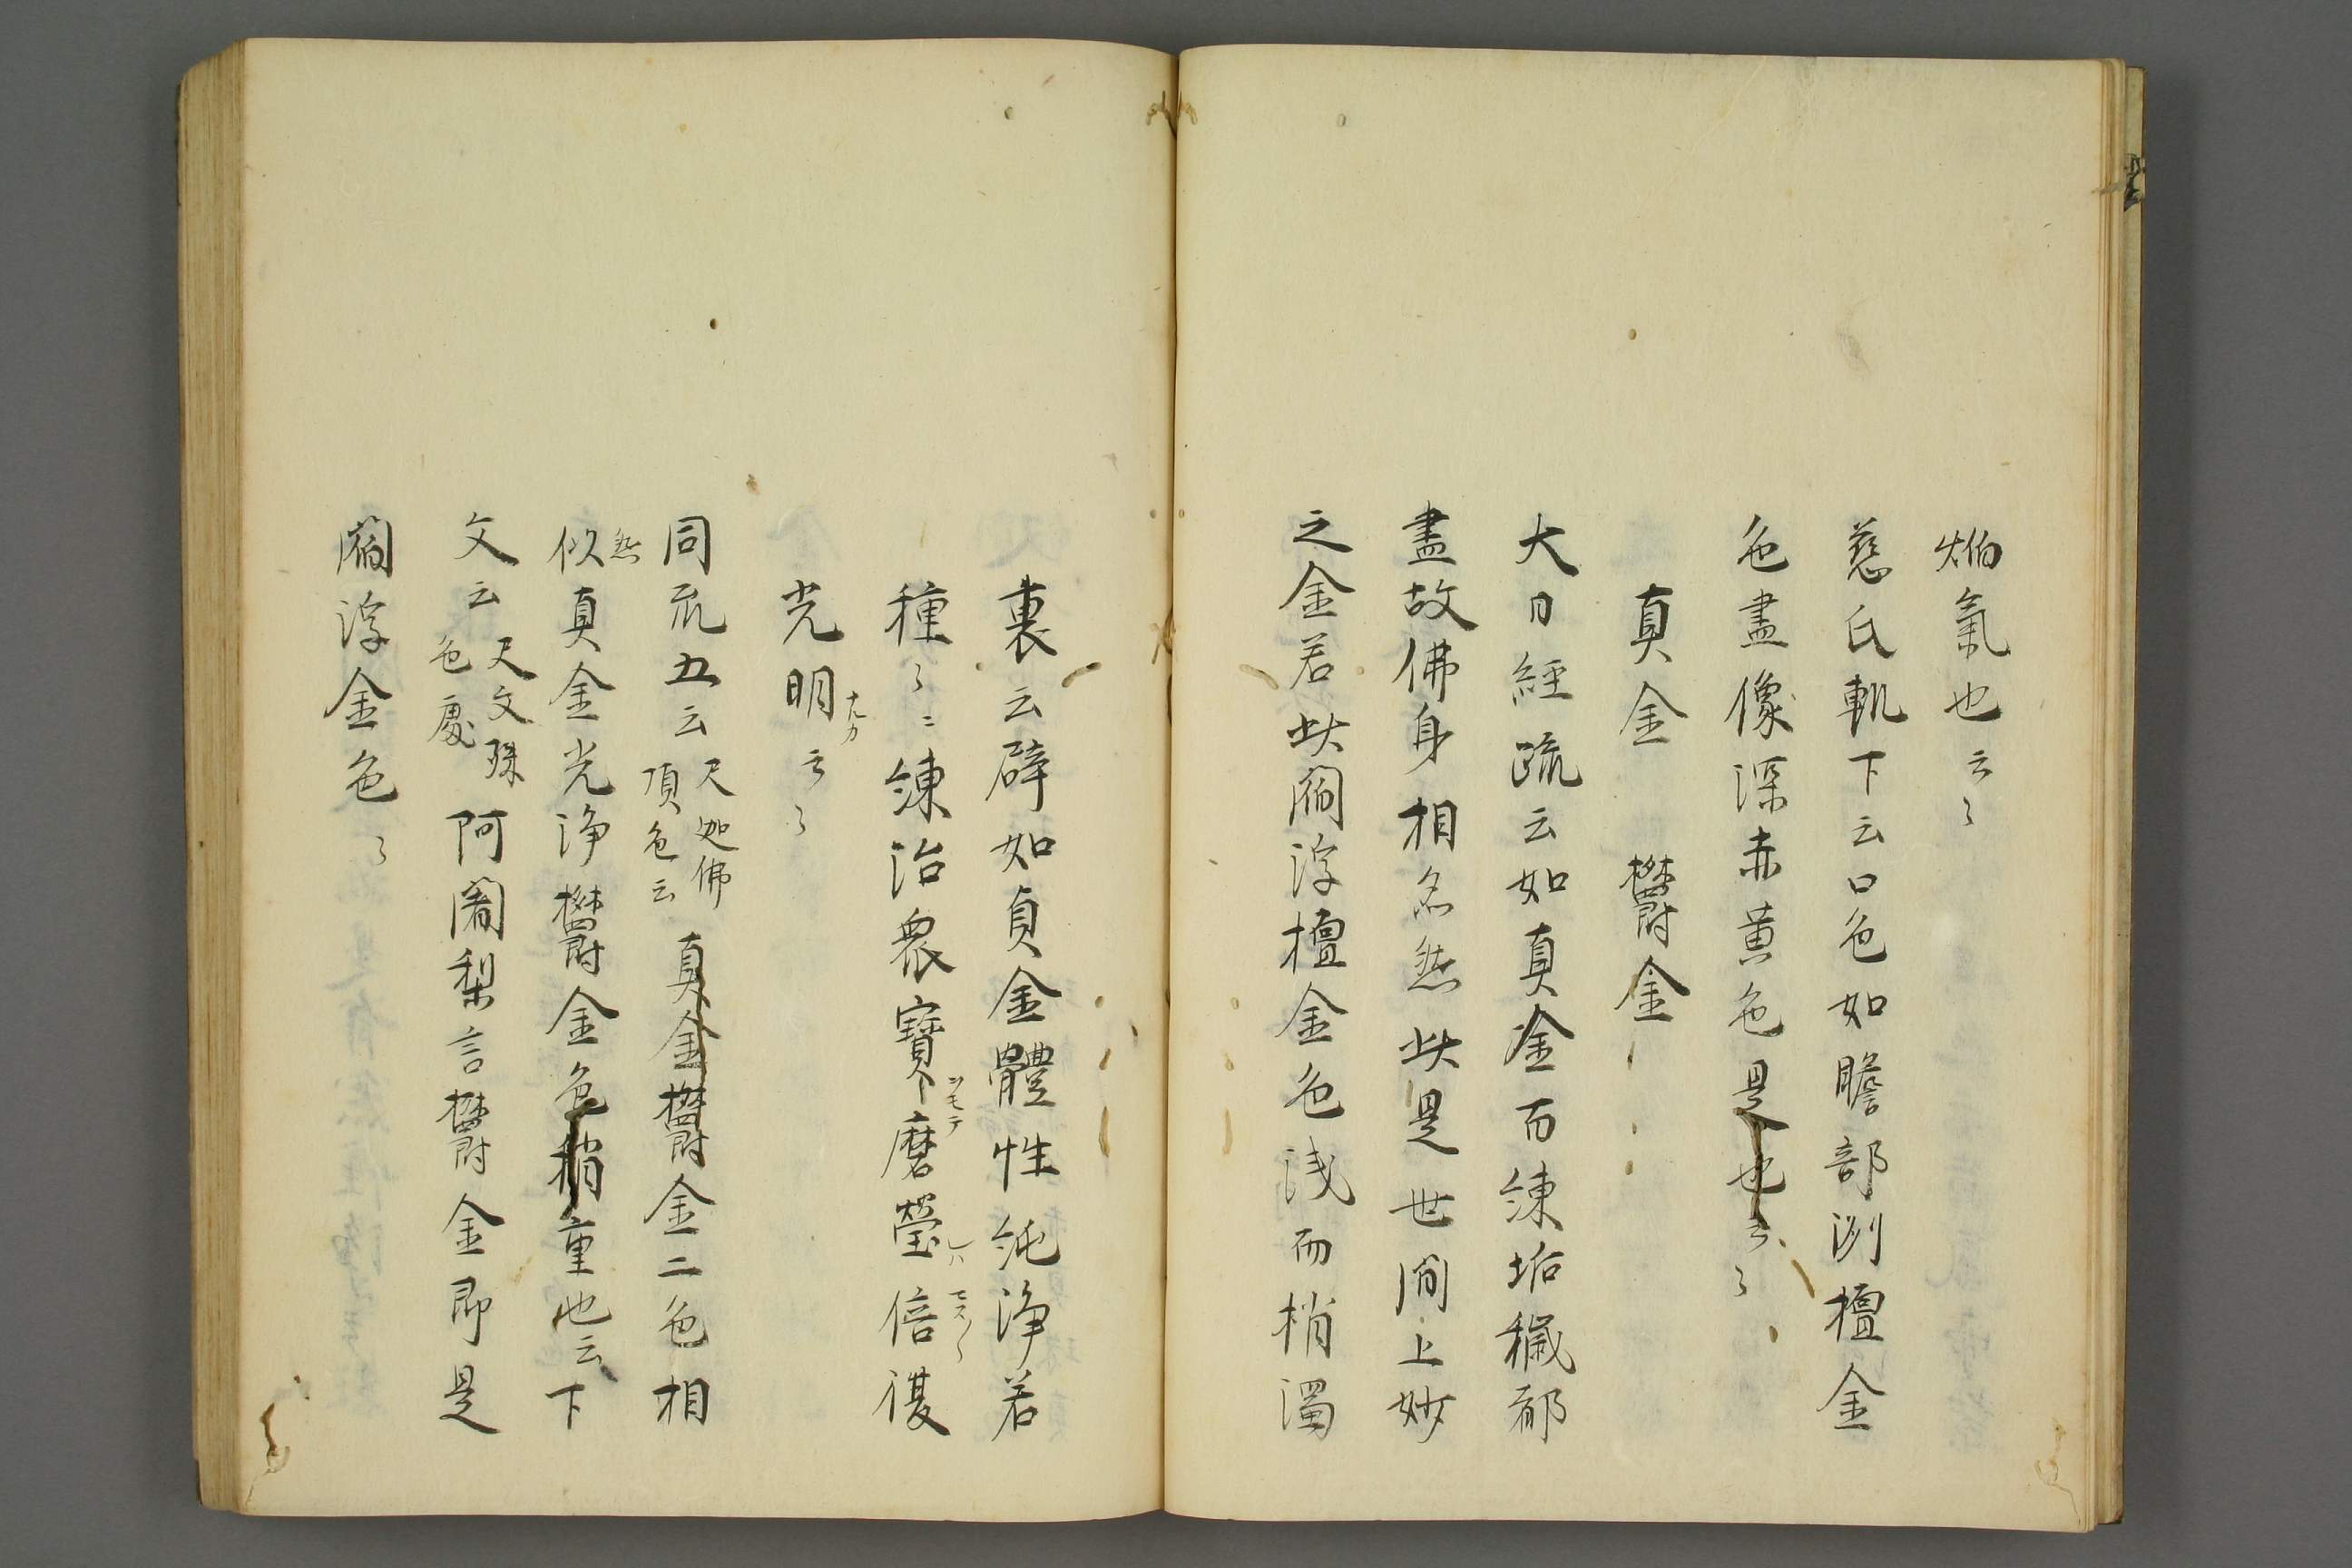 焔氣也云々
慈氏軌下云口色如瞻部洲檀金
色畫像深赤黄色是也云々
真金 欝金
大日經疏云如真金而練垢穢都
盡故佛身相亦然此是世間上妙
之金若此閻浮檀金色浅而梢濁
裏云辟如真金體性純淨若
種々ニ練治衆寶ツモテ磨瑩シハ倍モス〳〵復
光明ナルカ云々
同疏五云尺処佛頂色云真金欝金二色相
似然真金光淨欝金色稍重也云下
文云尺文殊色處阿闍梨言欝金即是
閻浮金色々